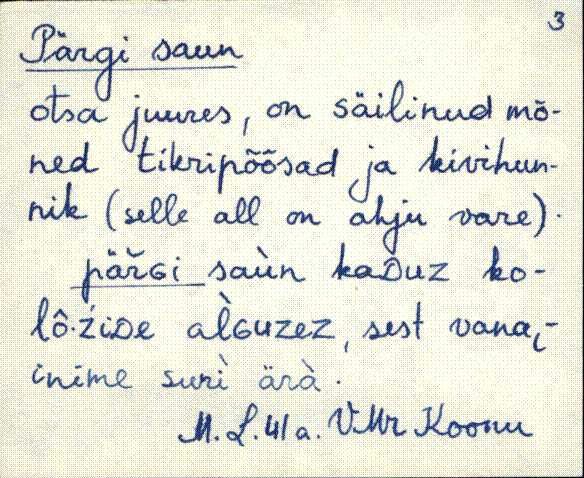 3
Pärgi saun
otsa juures, on säilinud mõ-
ned tikripõõsad ja kivihun-
nik (selle all on ahju vare).
pär̆ɢi saùn kaᴅuz ko-
lô·źiᴅe al̀ɢuzez, sest vanai̯-
inime surì ärà.
M. L. 41 a. VMr Koonu